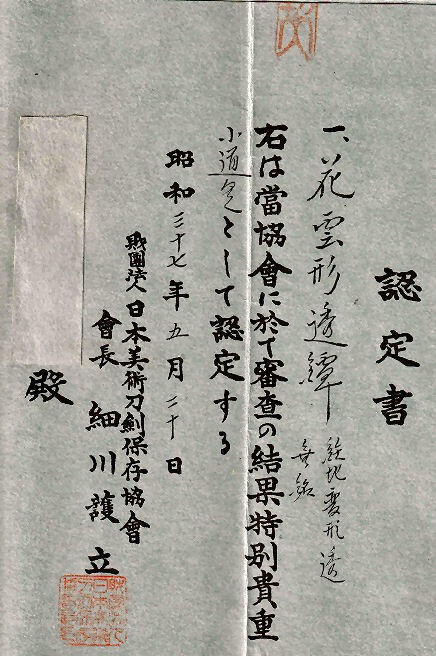 認定書
一、花雲形透鐔
鉄地変形透
無銘
右は當協會に於て審査の結果特別貴重
小道具として認定する
昭和三十七年五月二十日
財團法人日本美術刀劍保存協會
會長 細川護立
殿